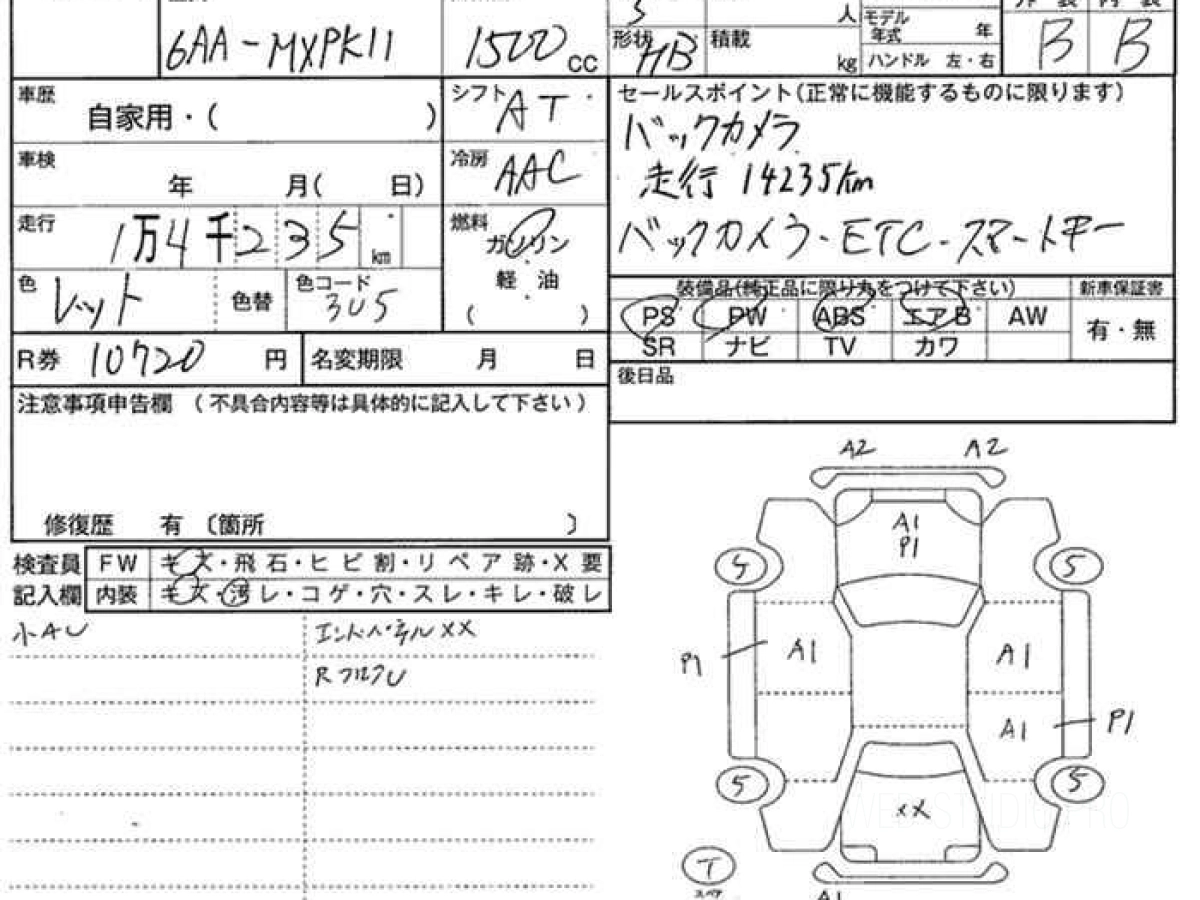 6AA-MXPK11
1500 cc
5 人
モデル年式 年
形状 HB
積載 kg
ハンドル 左・右
B B
車歴 自家用・( )
シフト AT
車検 年 月( 日)
冷房 AAC
走行 1万4千235km
燃料 ガソリン
軽油
( )
色 レット
色替
色コード 3U5
R券 10720 円
名変期限 月 日
セールスポイント(正常に機能するものに限ります)
バックカメラ
走行 14235km
バックカメラ・ETC・スマートキー
装備品(純正品に限り丸をつけて下さい)
新車保証書
PS PW ABS エアB AW
有・無
SR ナビ TV カワ
後日品
注意事項申告欄 (不具合内容等は具体的に記入して下さい)
修復歴 有 〔箇所 〕
検査員記入欄
FW キズ・飛石・ヒビ割・リペア跡・X要
内装 キズ・汚レ・コゲ・穴・スレ・キレ・破レ
小AU
エンドパネルXX
RフロアU
A2 A2
A1
P1
5 5
P1 A1 A1
A1 P1
5 5
XX
T
スペア
A1